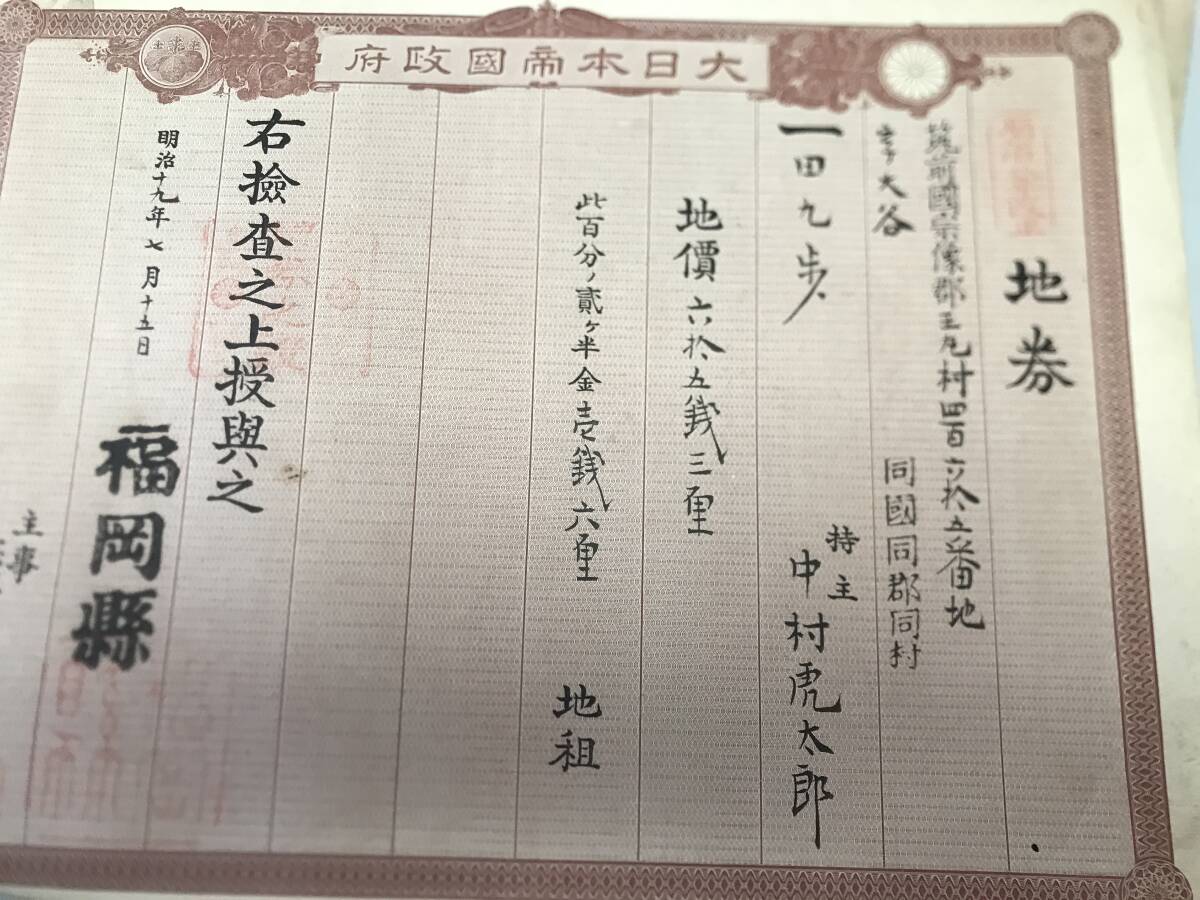 大日本帝國政府
地券
筑前國宗像郡王丸村四百六拾五番地
字大谷 同國同郡同村
一田九歩 持主 中村虎太郎
地價六拾五錢三厘
此百分ノ貳ヶ半金壱錢六厘 地租
右撿査之上授與之
明治十九年七月十五日 福岡縣
主事